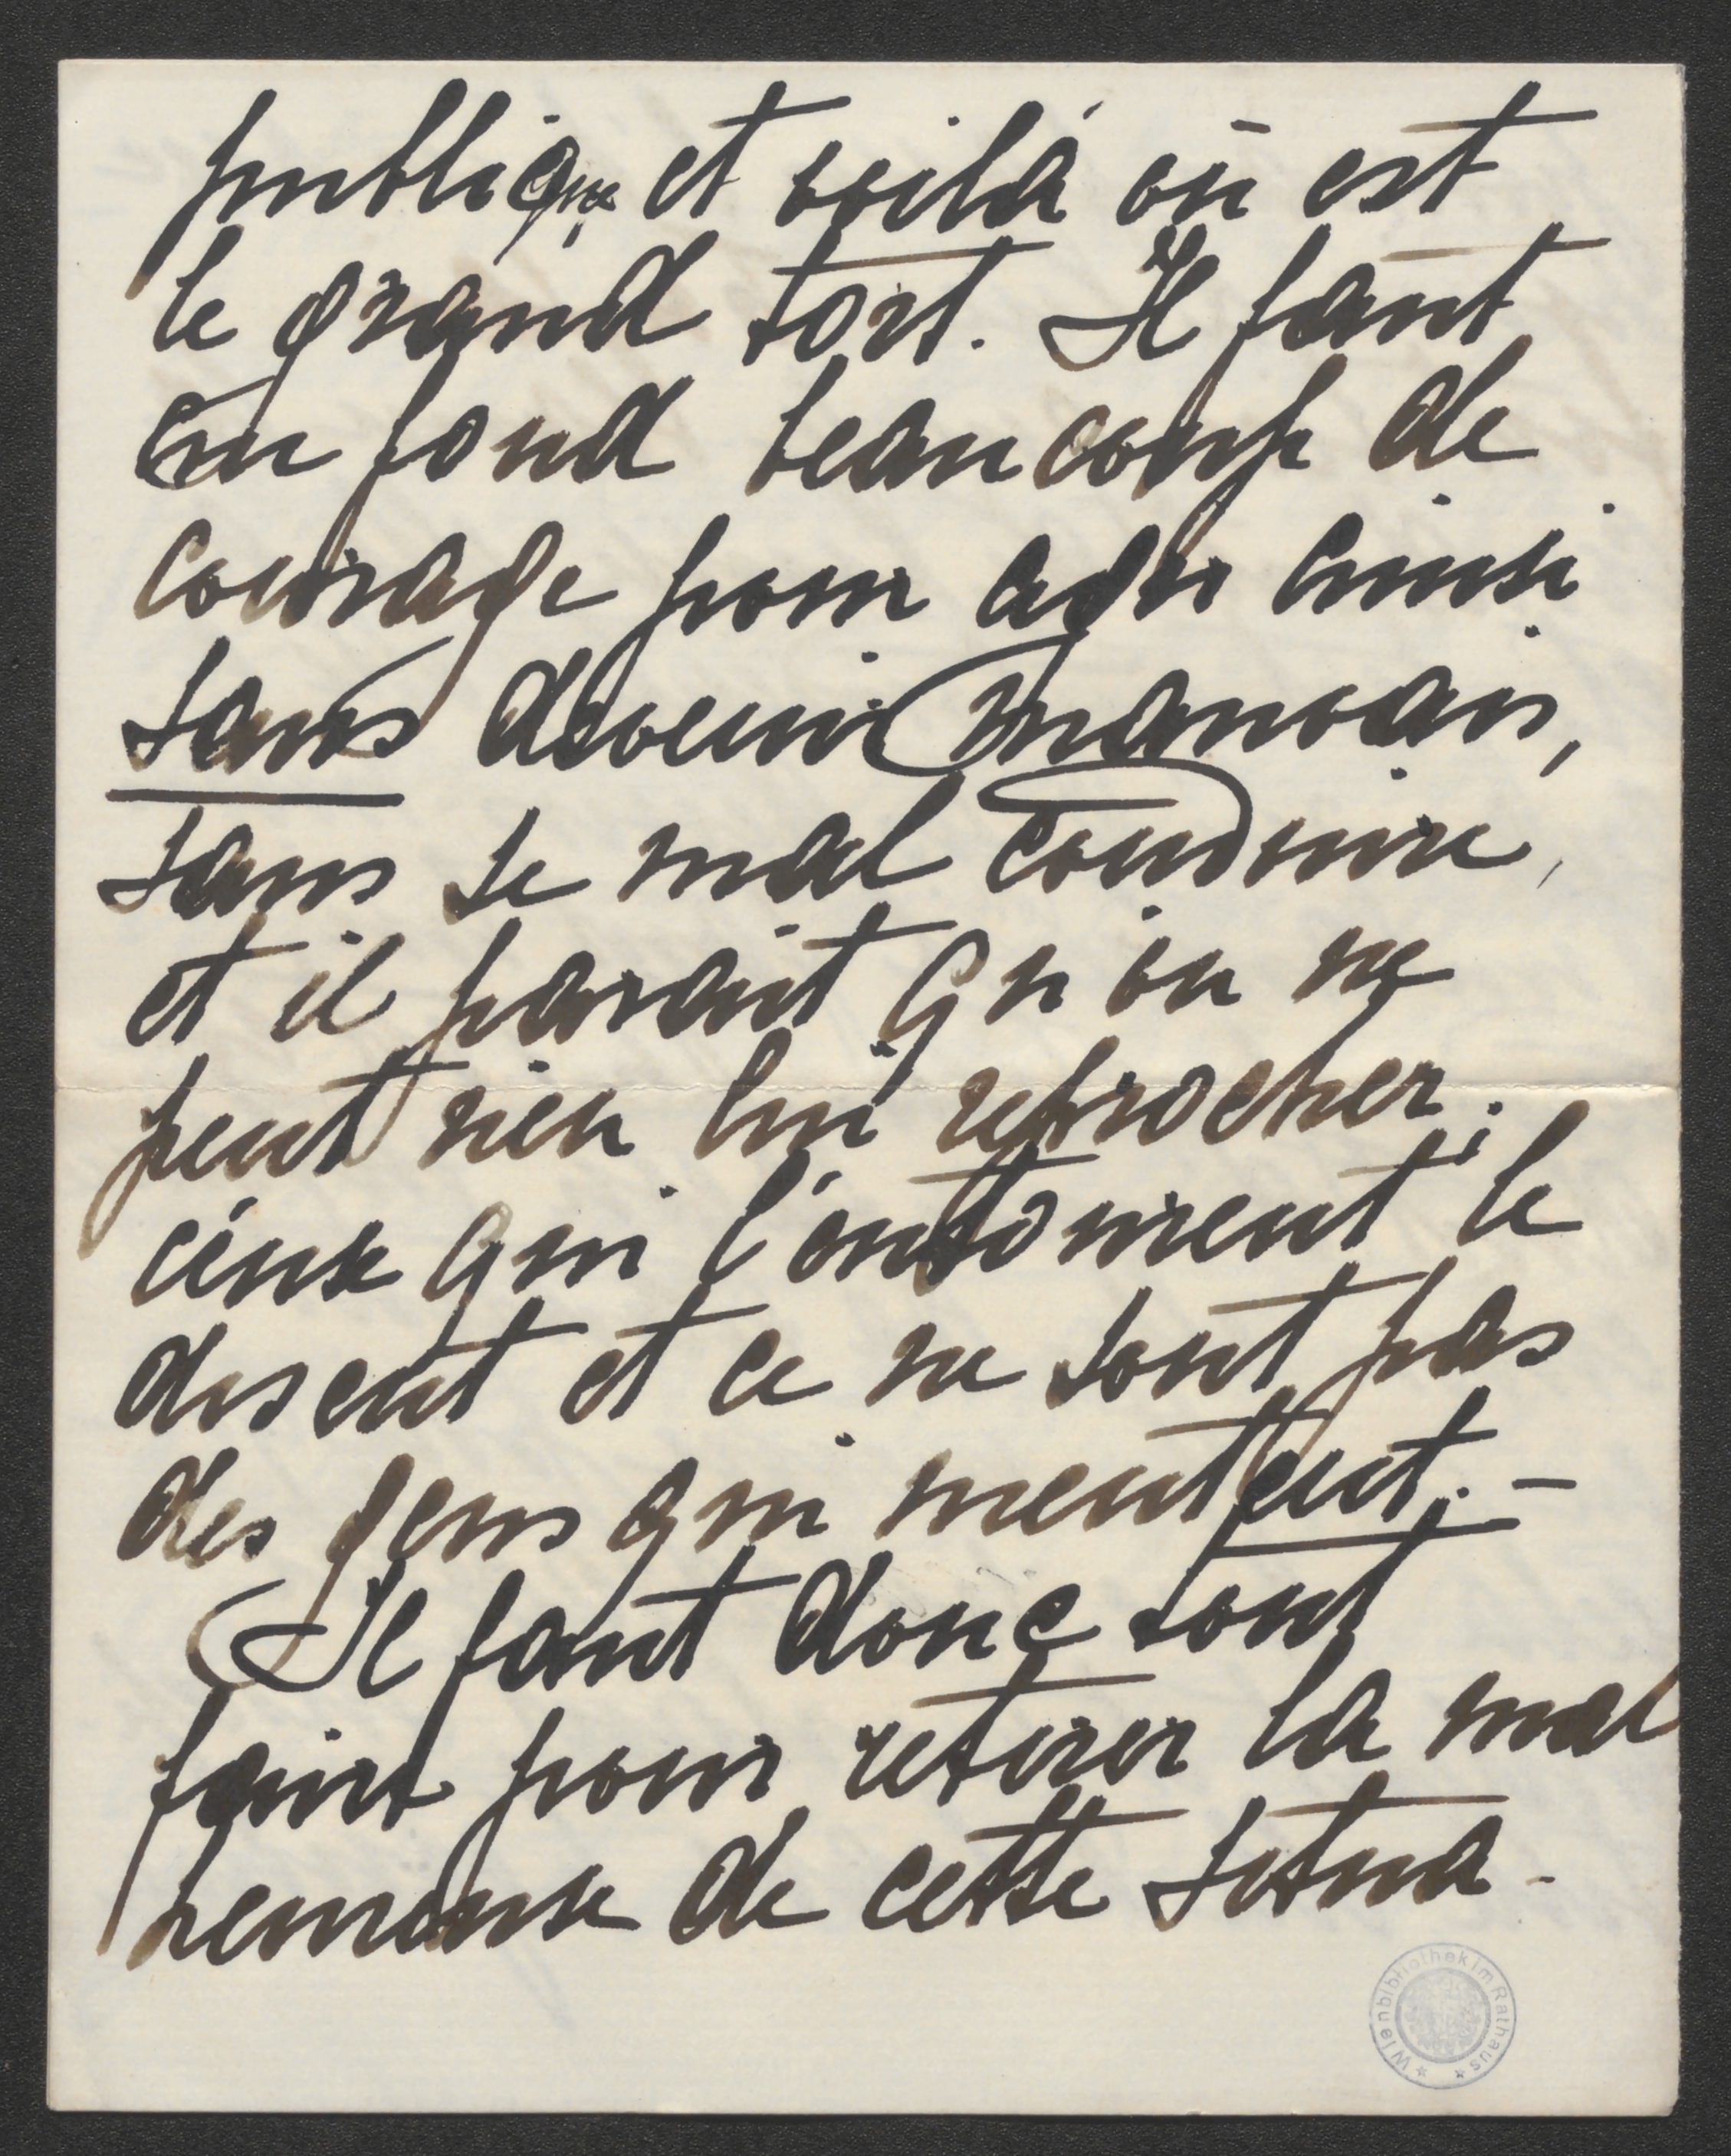 publique et voilá où est
le grand tort. Il faut
au fond beaucoup de
courage pour agir ainsi
sans devenir mauvais,
sans se mal conduire,
et il parait qu'on ne
peut rien lui reprocher;
ceux qui l'entourent le
disent et ce ne sont pas
des gens qui mentent. –
Il faut donc tout
faire pour retirer la mal
heureuse de cette situa-
Wienbibliothek im Rathaus